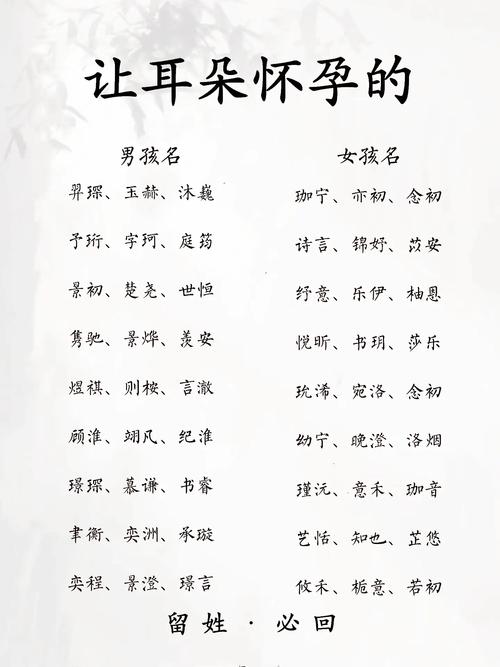 让耳朵怀孕的
男孩名
羿琛、玉赫、沐巍
予珩、字珂、庭筠
景初、楚尧、世恒
隽驰、景烨、羡安
煜祺、则桉、言澈
顾淮、翊凡、纪淮
璟琛、慕谦、书睿
聿衡、奕洲、承璇
奕程、景澄、璟言
女孩名
珈宁、亦初、念初
诗言、锦妤、苡安
纾意、乐伊、柚恩
悦昕、书玥、莎乐
玧浠、宛洛、念初
幼宁、晚澄、洛烟
瑾沅、意禾、珈音
艺恬、知也、芷悠
攸禾、栀意、若初
留姓 · 必回